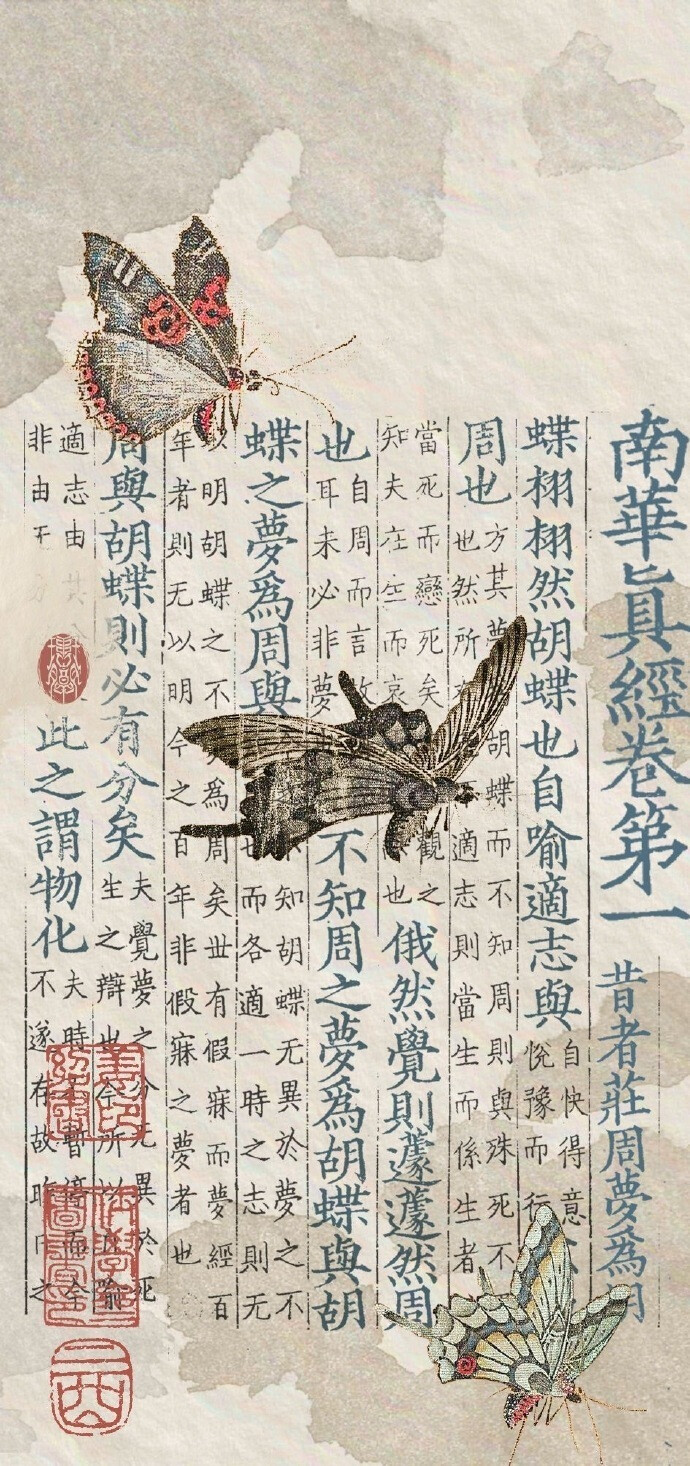 南華眞經卷第一
昔者莊周夢爲胡
蝶栩栩然胡蝶也自喻適志與
自快得意
悅豫而行
周也
方其夢胡蝶而不知周則與殊死不
也然所適志則當生而係生者
當死而戀死矣觀之
知夫在生而哀也
俄然覺則蘧蘧然周
也
自周而言故
耳未必非夢
不知周之夢爲胡蝶與胡
蝶之夢爲周與
知胡蝶无異於夢之不
也而各適一時之志則无
以明胡蝶之不爲周矣世有假寐而夢經百
年者則无以明今之百年非假寐之夢者也
周與胡蝶則必有分矣
夫覺夢之分无異於死
生之辯也今所以喻
適志由其
非由无
此之謂物化
夫時不暫停而今
不遂存故昨日之
二酉